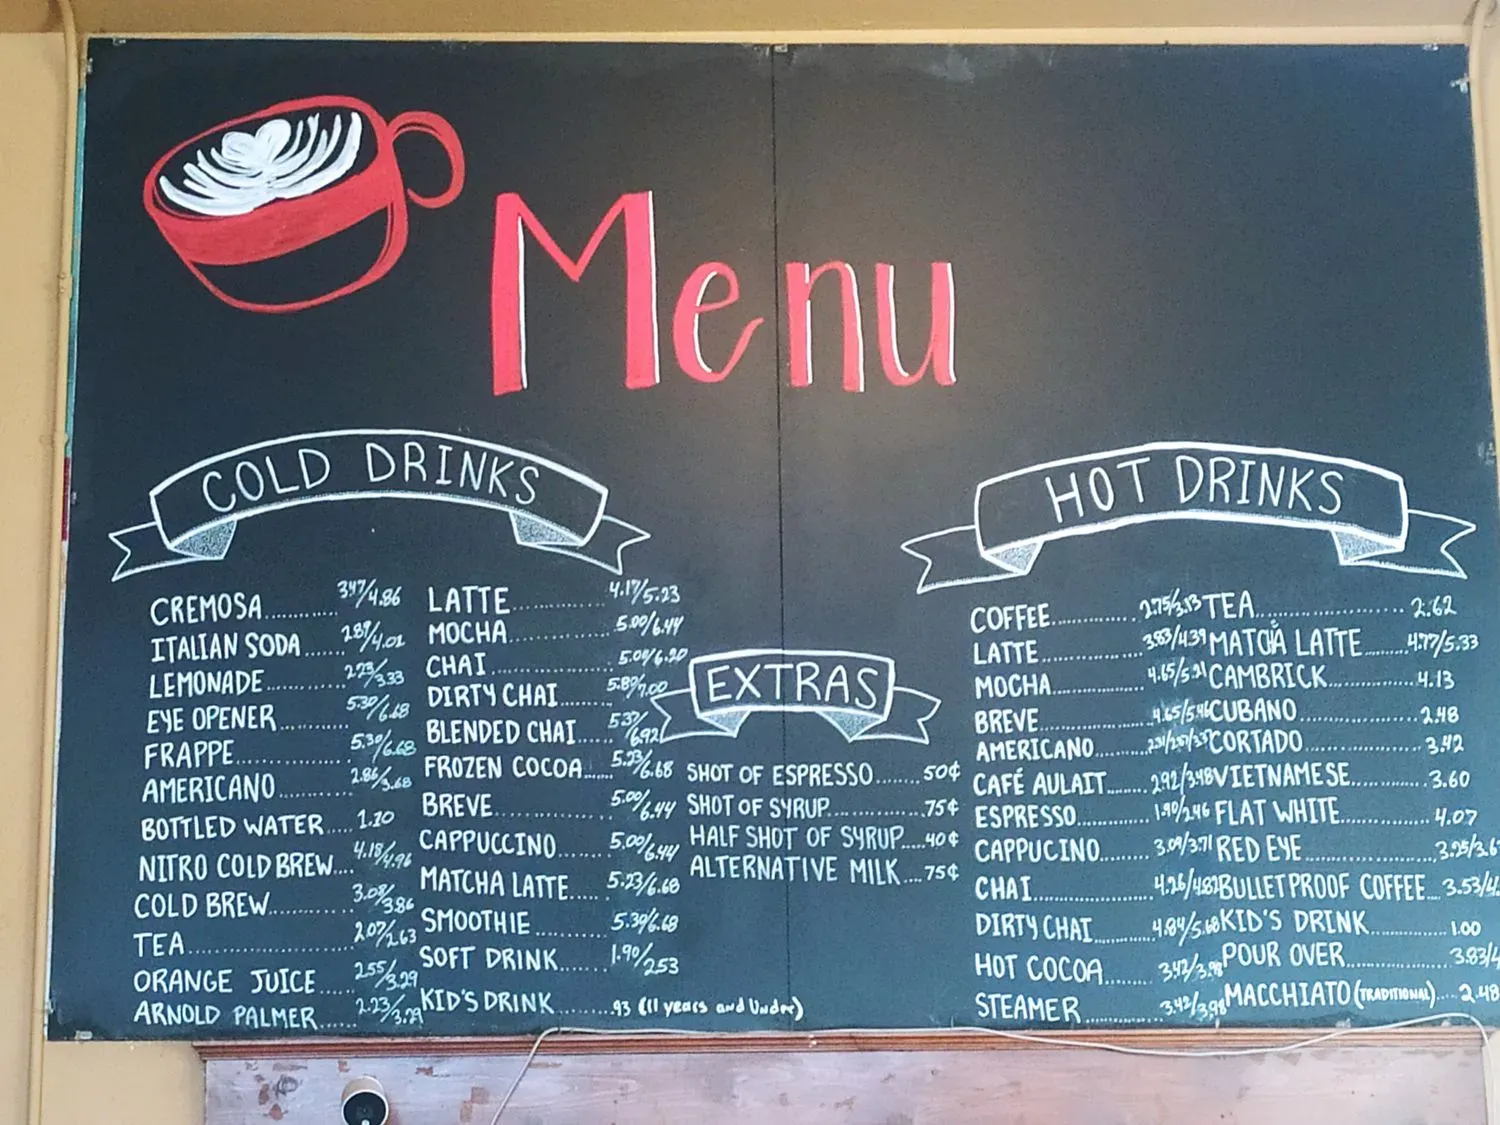 Menu
COLD DRINKS
CREMOSA 3.47/4.86
ITALIAN SODA 2.89/4.02
LEMONADE 2.23/3.33
EYE OPENER 5.30/6.68
FRAPPE 5.30/6.68
AMERICANO 2.86/3.68
BOTTLED WATER 1.20
NITRO COLD BREW 4.18/4.96
COLD BREW 3.08/3.86
TEA 2.07/2.63
ORANGE JUICE 2.55/3.29
ARNOLD PALMER 2.23/3.29
LATTE 4.17/5.23
MOCHA 5.00/6.44
CHAI 5.00/6.20
DIRTY CHAI 5.89/7.00
BLENDED CHAI 5.37/6.92
FROZEN COCOA 5.23/6.68
BREVE 5.00/6.44
CAPPUCCINO 5.00/6.44
MATCHA LATTE 5.23/6.68
SMOOTHIE 5.39/6.68
SOFT DRINK 1.90/2.53
KID'S DRINK .93 (11 years and Under)
EXTRAS
SHOT OF ESPRESSO 50¢
SHOT OF SYRUP .75¢
HALF SHOT OF SYRUP 40¢
ALTERNATIVE MILK 75¢
HOT DRINKS
COFFEE 2.75/3.13
LATTE 3.83/4.39
MOCHA 4.65/5.21
BREVE 4.65/5.46
AMERICANO
CAFÉ AULAIT 2.92/3.48
ESPRESSO 1.90/2.46
CAPPUCINO 3.09/3.71
CHAI 4.26/4.82
DIRTY CHAI 4.84/5.68
HOT COCOA 3.42/3.98
STEAMER 3.42/3.98
TEA 2.62
MATCHA LATTE 4.77/5.33
CAMBRICK 4.13
CUBANO 2.48
CORTADO 3.42
VIETNAMESE 3.60
FLAT WHITE 4.07
RED EYE
BULLETPROOF COFFEE
KID'S DRINK 1.00
POUR OVER
MACCHIATO (TRADITIONAL) 2.48